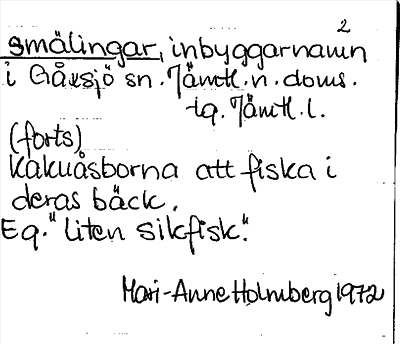 2
smälingar, inbyggarnamn
i Gåxsjö sn. Jämtl. n. doms.
tg. Jämtl. l.
(forts)
Kakuåsborna att fiska i
deras bäck.
Eg. "liten silkfisk."
Mari-Anne Holmberg 1972